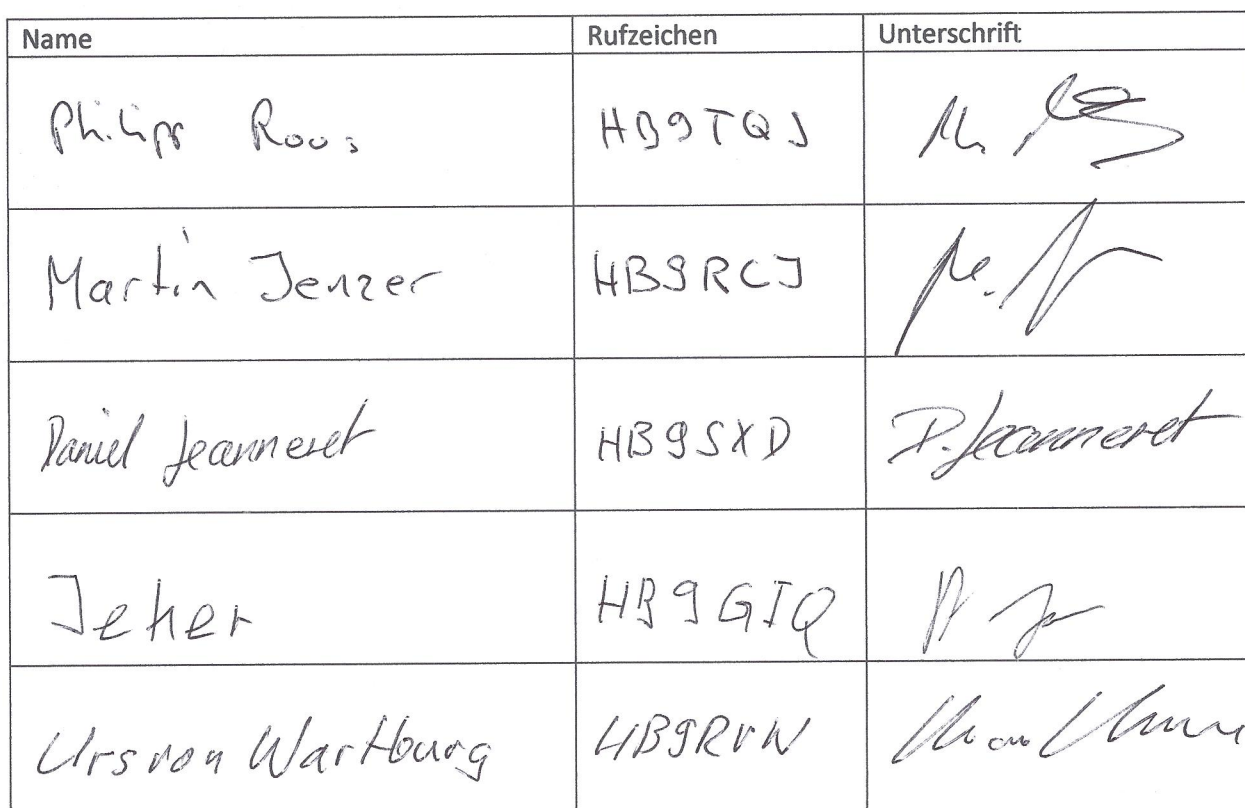 Name Rufzeichen Unterschrift
Philipp Roos HB9TQJ
Martin Jenzer HB9RCJ
Daniel Jeanneret HB9SXD D. Jeanneret
Jeker HB9GIQ
Urs von Wartburg HB9RVW